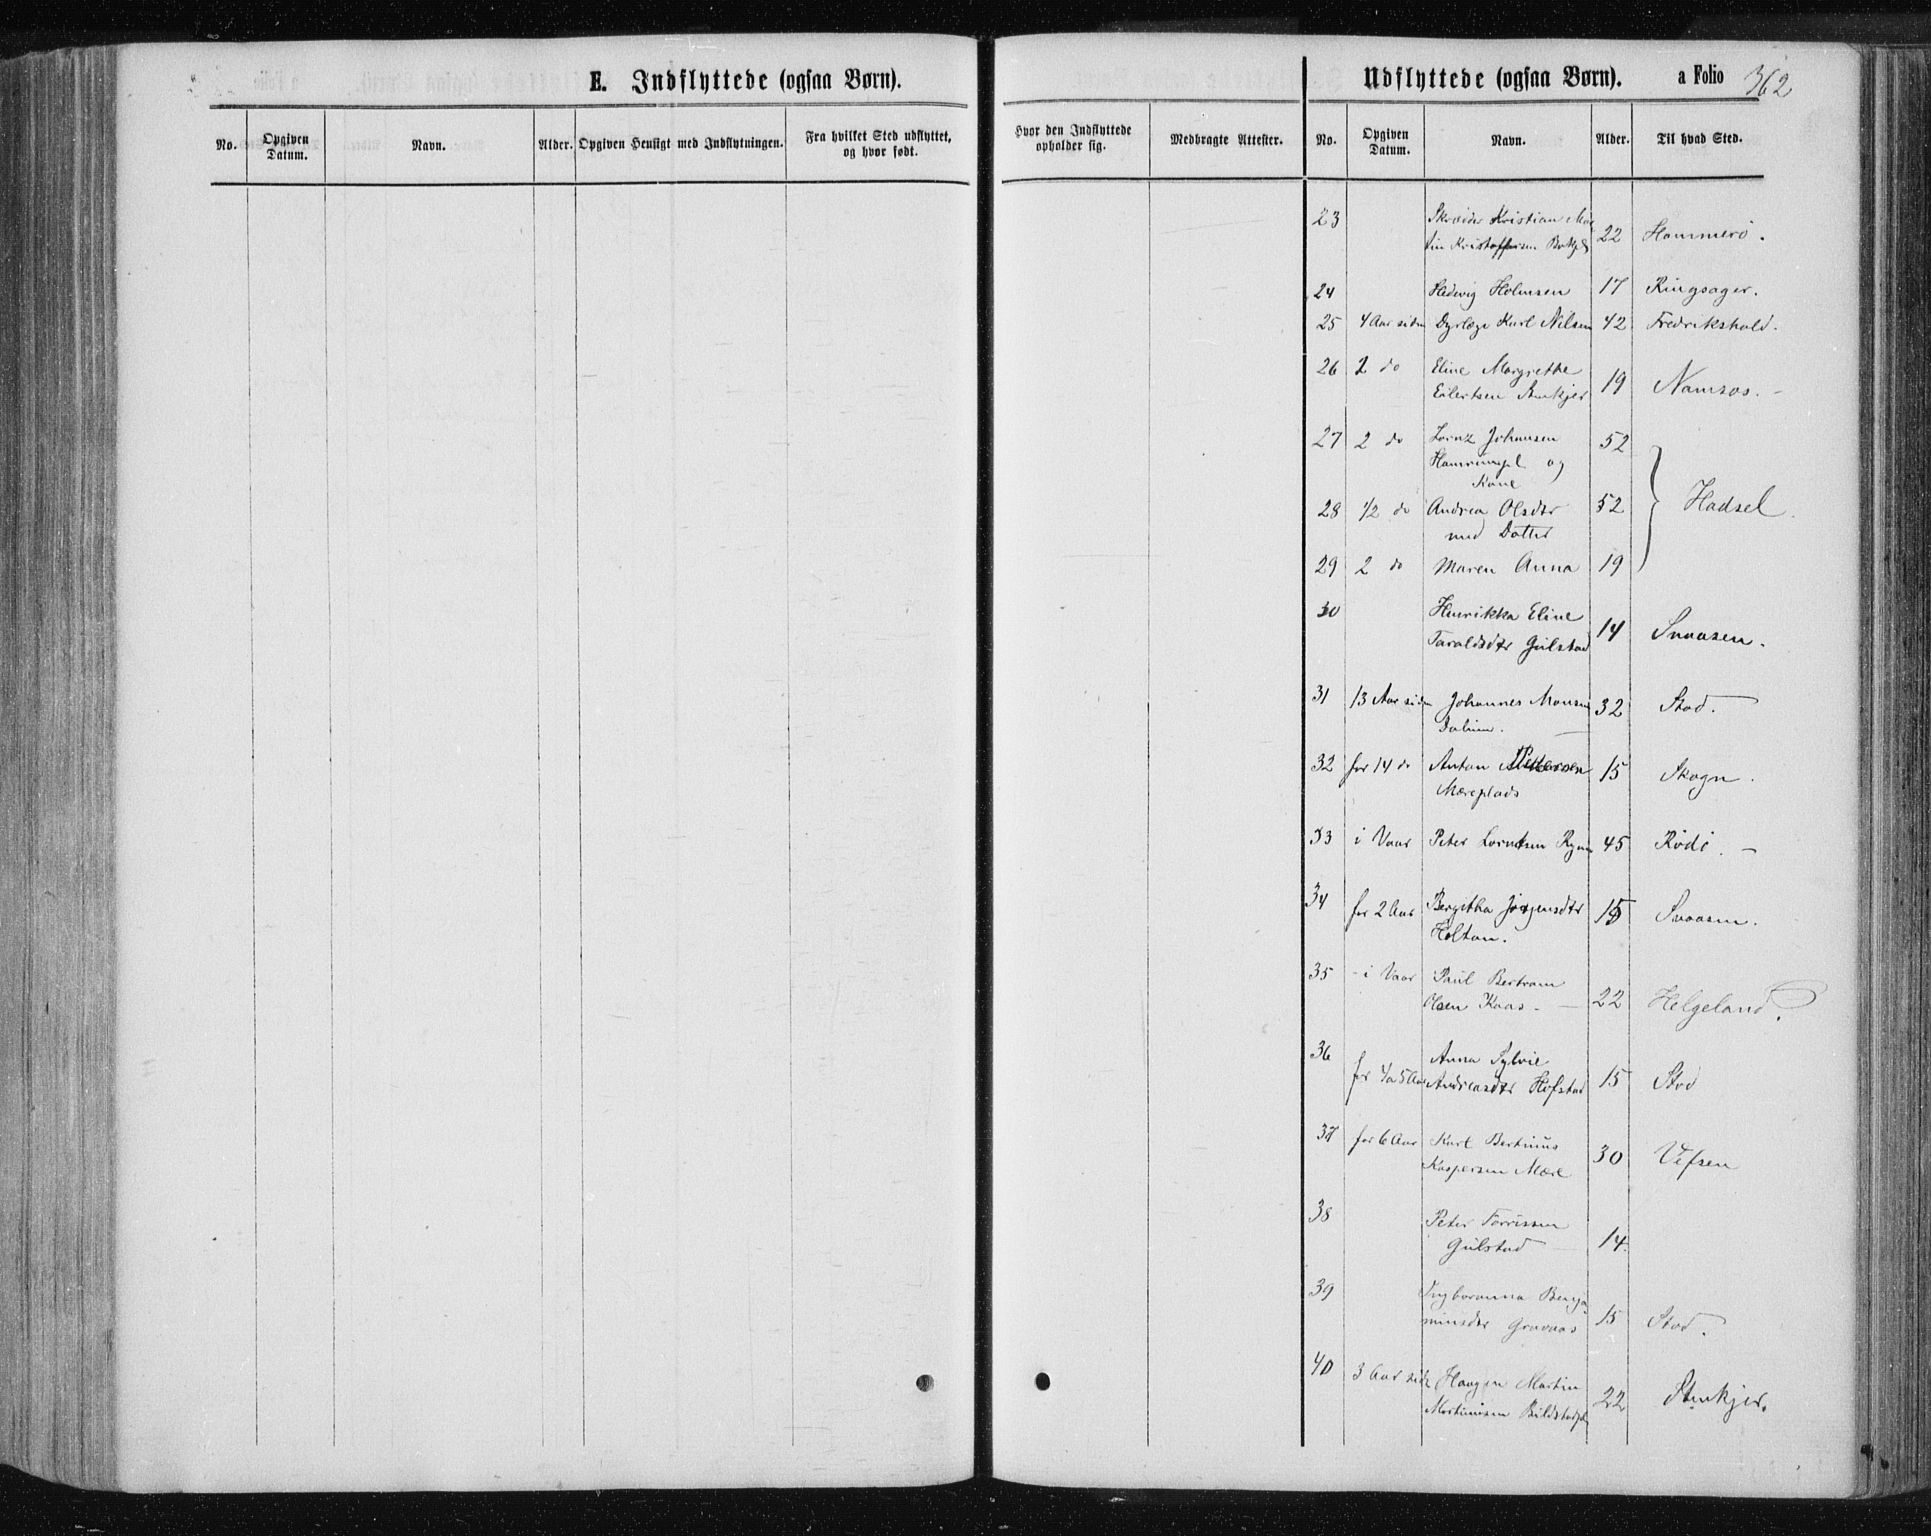 E. Indflyttede (ogsaa Børn).
Udflyttede (ogsaa Børn).
a Folio 362
No.
Opgiven Datum.
Navn.
Alder.
Opgiven Hensigt med Indflytningen.
Fra hvilket Sted udflyttet, og hvor født.
Hvor den Indflyttede opholder sig.
Medbragte Attester.
No.
Opgiven Datum.
Navn.
Alder.
Til hvad Sted.
23 Skræder Kristian Mar
tin Kristoffersen 22 Hammerö.
24 Hedevig Holmsen 17 Ringsager.
25 4 Aar siden Dyrlæge Karl Nilsen 42 Fredrikshald.
26 2 do Eline Margrethe
Eilertsen Stenkjer 19 Namsos.
27 2 do Lornz Johansen 52
og
Kone
28 1/2 do Andrea Olsdtr 52 Hadsel.
med Datter
29 2 do Maren Anna 19
30 Henrikka Eline
Taraldsdtr Gulstad 14 Snaasen.
31 13 Aar siden Johannes Monsen 32 Stod.
Dalum.
32 for 14 do Anton Pettersen 15 Skogn.
Mæreplads
33 i Vaar Peter Lorntsen 45 Rödö.
34 for 2 Aar Bergitha Jörgensdtr 15 Snaasen.
Holtan.
35 i Vaar Paul Bertram
Olsen Kaas 22 Helgeland.
36 Anna Sylvie
for 4 a 5 Aar Andreasdtr Hofstad 15 Stod
37 for 6 Aar Karl Bertinus
Kaspersen Mære 30 Vefsen
38 Peter Torrissen
Gulstad 14.
39 Ingboranna Benja
minsdtr Gravaas 15 Stod.
40 3 Aar siden Haagen Martin
Martinusen 22 Stenkjer.